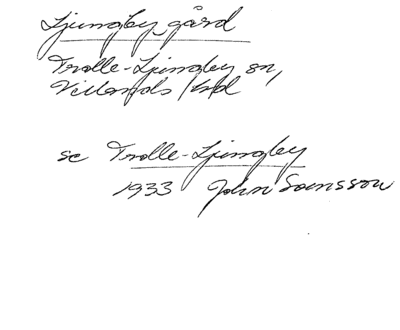 Ljungby gård
Trolle-Ljungby sn,
Villands hd
se Trolle-Ljungby
1933 John Svensson